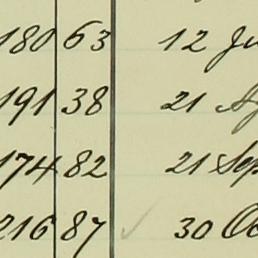 180 63 12 Ju
191 38 21 Ag
174 82 21 Sep
216 87 30 Oc